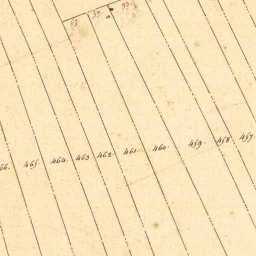 466. 465. 464. 463 462. 461. 460. 459. 458. 457